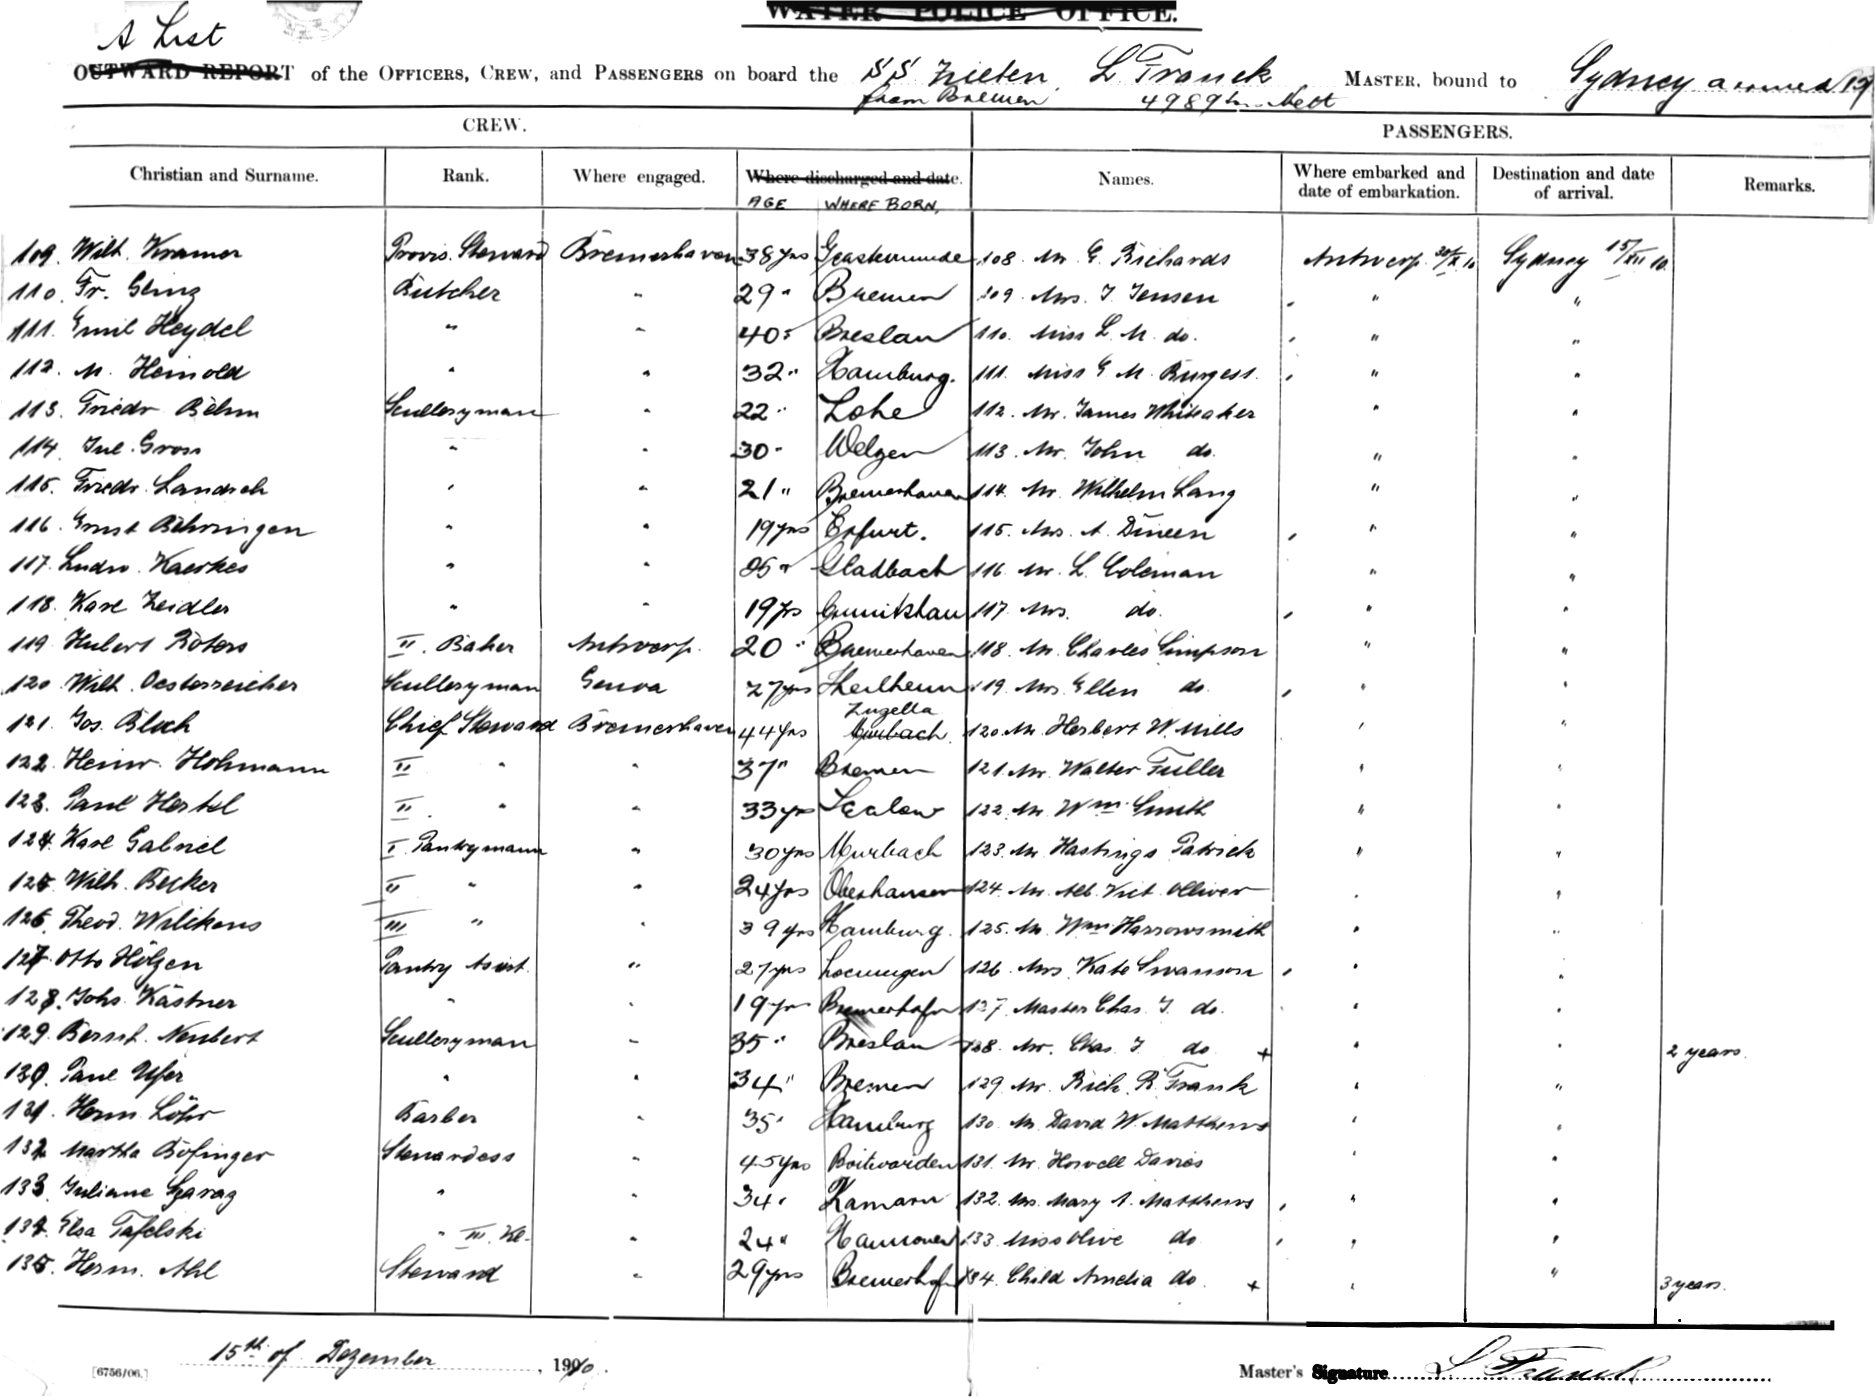 WATER POLICE OFFICE.
A List
OUTWARD REPORT of the OFFICERS, CREW, and PASSENGERS on board the SS Zieten, L. Franck MASTER, bound to Sydney arrived
from Bremen 4989 Nett
CREW. PASSENGERS.
Christian and Surname. Rank. Where engaged. Where discharged and date. Names. Where embarked and date of embarkation. Destination and date of arrival. Remarks.
AGE WHERE BORN,
109. Wilh. Kramer Provis. Steward Bremerhaven 38 yrs Geestemunde 108. Mr. E. Richards Antwerp Sydney 15/XII 10
110. Fr. Glinz Butcher " 29 " Bremen 109. Mrs. J. Jensen " "
111. Emil Heydel " " 40 " Breslau 110. Miss L. M. do. " "
112. M. Heinold " " 32 " Hamburg. 111. Miss E. M. Burgess. " "
113. Friedr. Böhm Scullery man " 22 " Lohe 112. Mr. James Whiteaker " "
114. Jul. Gross " " 30 " Welgen 113. Mr. John do. " "
115. Friedr. Landsch " " 21 " Bremerhaven 114. Mr. Wilhelm Lang " "
116. Ernst Böhringen " " 19 yrs Erfurt. 115. Mrs. A. Dineen " "
117. Ludw. Kaerkes " " " Gladbach 116. Mr. L. Coleman " "
118. Karl Zeidler " " 19 yrs 117. Mrs. do. " "
119. Hubert Roters II. Baker Antwerp. 20 " Bremerhaven 118. Mr. Charles Simpson " "
120. Wilh. Oesterreicher Scullery man Genoa 27 yrs 119. Mrs. Ellen do. " "
121. Jos. Bloch Chief Steward Bremerhaven 44 yrs Zuzella Murbach 120. Mr. Herbert W. Mills " "
122. Heinr. Hohmann II " " 37 " Bremen 121. Mr. Walter Fuller " "
123. Paul Hertel II. " " 33 yrs Seelow 122. Mr. Wm. Smith " "
124. Karl Gabriel I. Pantrymann " 30 yrs Murbach 123. Mr. Hastings Patrick " "
125. Wilh. Becker II " " 24 yrs Oberhausen 124. Mr. Alb. Vict. Olliver " "
126. Theod. Wilikens III " " 39 yrs Hamburg. 125. Mr. Wm Harrowsmith " "
127. Otto Hölzen Pantry Assist. " 27 yrs Loeningen 126. Mrs. Kate Swanson " "
128. Johs. Kästner " " 19 yrs Bremerhafn 127. Master Chas. J. do. " "
129. Bernh. Neubert Scullery man " 35 " Breslau 128. Mr. Chas. J. do + " " 2 years.
130. Paul Ufer " " 34 " Bremen 129. Mr. Rich. R. Frank " "
131. Herm. Löhr Barber " 35 " Hamburg 130. Mr. David W. Matthews " "
132. Martha Böfinger Stewardess " 45 yrs Boitwarden 131. Mr. Howell Davies " "
133. Juliane " " 34 " Kamarn 132. Mrs. Mary A. Matthews " "
134. Elsa Tafelski " III. Kl. " 24 " Hannover 133. Miss Olive do " "
135. Herm. Ahl Steward " 29 yrs Bremerhafn 134. Child Amelia do. + " " 3 years.
15th of Dezember, 1910.
[6756/06.] Master's Signature L Franck